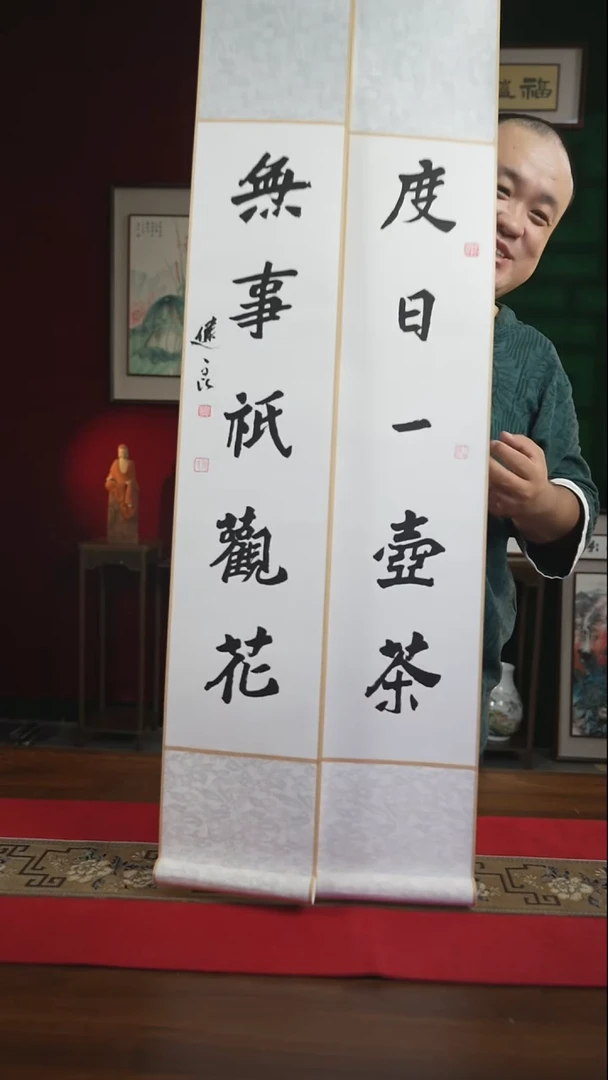 度日一壺茶
無事祇觀花
福